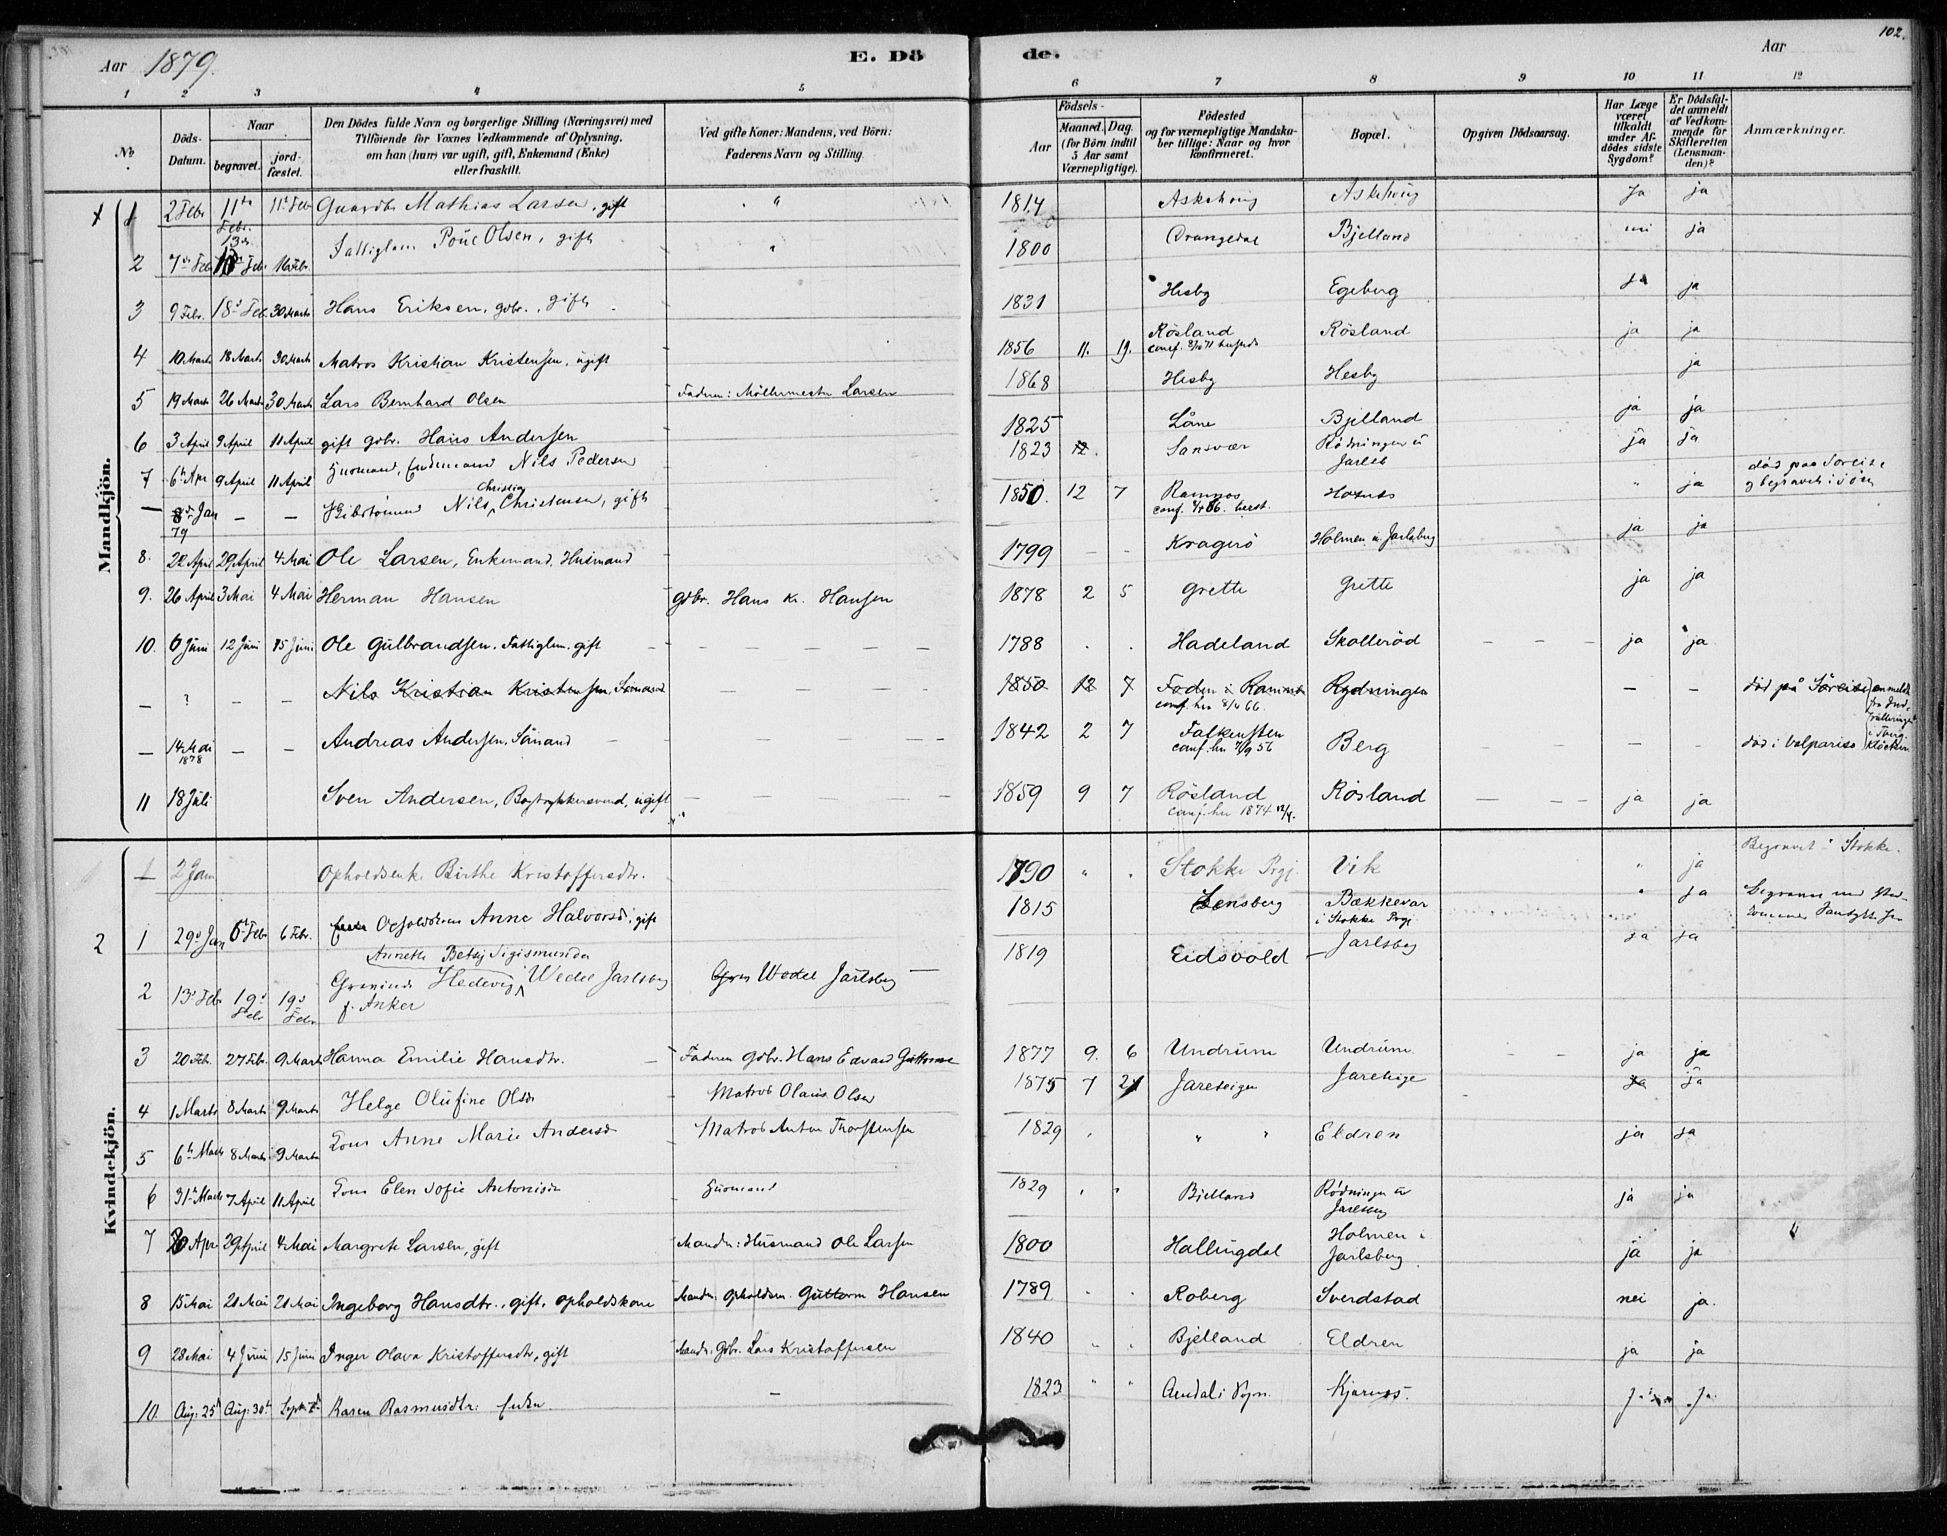 102.
Aar 1879. E. Dö de. Aar
1 2 3 4 5 6 7 8 9 10 11 12
No. Döds-Datum. Naar begravet. jordfæstet. Den Dödes fulde Navn og borgerlige Stilling (Næringsvei) med Tilföiende for Voxnes Vedkommende af Oplysning, om han (hun) var ugift, gift, Enkemand (Enke) eller fraskilt. Ved gifte Koner: Mandens, ved Börn: Faderens Navn og Stilling. Födsels- Aar Maaned. Dag. (for Börn indtil 5 Aar samt Værnepligtige). Födested og for værnepligtige Mandskaber tillige: Naar og hvor konfirmeret. Bopæl. Opgiven Dödsaarsag. Har Læge været tilkaldt under Afdödes sidste Sygdom? Er Dödsfaldet anmeldt af Vedkommende for Skifteretten (Lensmanden)? Anmærkninger.
Mandkjön.
1 2 Febr 11te Febr. 11te Febr Mathias Larsen, gift 1814 Askehoug Askehoug Ja ja
2 7de Feb 13de Feb. 16 Febr. Olsen, gift 1800 Drangedal Bjelland ja
3 9 Febr. 18de Feb. 30 Marts Hans Eriksen, gbr., gift 1831 Hesby Egeberg ja ja
4 10 Marts 18 Marts 30 Marts Matros Kristian Kristensen, ugift 1856 11. 19. Røsland conf. Røsland ja ja
5 19 Marts 26 Marts 30 Marts Lars Bernhard Olsen Faderen: Møllermester Larsen 1868 Hesby Hesby ja
6 3 April 9 April 11 April gift gbr. Hans Andersen 1825 Låne Bjelland ja ja
7 6te Apr 9 April 11 April Husmand, Enkemand Nils Pedersen 1823 12. Sansvær Rødningen u Jarlsb ja ja
— 8de Jan 79 — — Nils Christian Christensen, gift 1850. 12 7 Ramnes conf. ja død paa Søreise
8. 22 April 29 April 4 Mai Ole Larsen, Enkemand, Husmand 1799 – – Kragerø Holmen u. Jarlsberg ja ja
9. 26 April 3 Mai 4 Mai Herman Hansen gbr. Hans Kr. Hansen 1878 2 5 Grette Grette ja ja
10. 6 Juni 12 Juni 15 Juni Ole Gulbrandsen. Fattiglem. gift 1788 . . Hadeland Skollerød — — — ja ja
— ? — — Nils Kristian Kristensen, Sømand 1850 12 7 Føden i Ramnes conf. her 8/4 66. Rydningen — — død på Søreise anmeldt
— 14 Mai 1878 — — Andreas Andersen, Sømand 1842 2 7 Falkensten conf. her 7/9 56 Berg — — død i Valpariso
11 18 Juli Sven Andersen, Bogtrykkersvend, ugift 1859 9 7 Røsland conf. her 1874 Røsland — — — ja ja
Kvindekjön.
1 2 Jan Opholdsenke Birthe Kristoffersdtr. 1790 " . Stokke Prgj. Vik " ja Begravet i Stokke.
2 1 29de Jan 6te Febr 6 Febr. Anne Halvorsd. gift 1815 Bækkevar i Stokke Prgj ja
2 13de Feb 19de Feb 19de Feb Grevinde Hedevig Annette Betsy Sigismunda Wedel Jarlsberg f. Anker Grev Wedel Jarlsberg 1819 Eidsvold Jarlsberg ja ja
3 20 Feb. 27 Febr. 9 Marts Hanna Emilie Hansdtr. Faderen gbr. Hans Edvard Guttormsen 1877 9. 6 Undrum Undrum. ja ja
4 1 Marts 8 Marts 9 Marts Helge Olufine Olsdr Matros Olaus Olsen 1875 7 21 Jareteigen Jareteige ja ja
5 6te Marts 8 Marts 9 Marts Kone Anne Marie Andersd Matros Anton Thorstensen 1829 . " " Eldren ja ja
6 31te Marts 7 April 11 April Kone Elen Sofie Antonisdr Husmand 1829 Bjelland Rødningen u Jarlsberg ja ja
7 20 Apr 29 April 4 Mai Margrete Larsen, gift Manden: Husmand Ole Larsen 1800 Hallingdal Holmen i Jarlsberg ja ja
8 15 Mai 20 Mai 20 Mai Ingeborg Hansdtr., gift, opholdskone Manden: Opholdsm. Guttorm Hansen 1789 Roberg Sverdstad nei ja.
9 28 Mai 4 Juni 15 Juni Inger Olava Kristoffersdtr, gift Manden: Gbr. Lars Kristoffersen 1840 Bjelland Eldren ja ja
10. Aug: 25de Aug: 30te Sept: 7de Karen Rasmusdtr: Enke. — 1823 " " Arendals Sogn. Kjærnes. Ja.